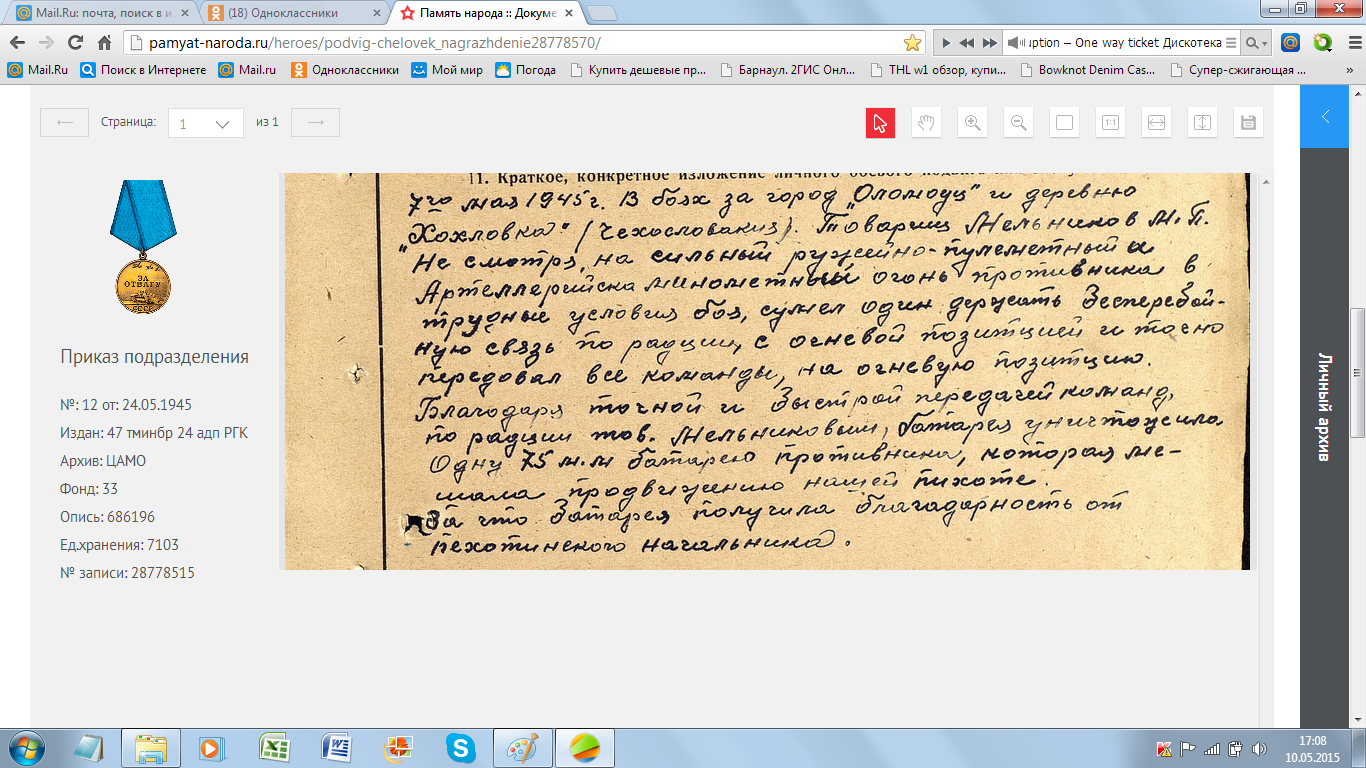 Mail.Ru: почта, поиск в и
(18) Одноклассники
Память народа :: Докуме
pamyat-naroda.ru/heroes/podvig-chelovek_nagrazhdenie28778570/
ıption – One way ticket Дискотека
Mail.Ru Поиск в Интернете Mail.ru Одноклассники Мой мир Погода Купить дешевые пр... Барнаул. 2ГИС Онл... THL w1 обзор, купи... Bowknot Denim Cas... Супер-сжигающая ... »
Страница: 1 из 1
1:1
ЗА
ОТВАГУ
СССР
Приказ подразделения
№: 12 от: 24.05.1945
Издан: 47 тминбр 24 адп РГК
Архив: ЦАМО
Фонд: 33
Опись: 686196
Ед.хранения: 7103
№ записи: 28778515
11. Краткое, конкретное изложение личного боевого
7го мая 1945г. В боях за город „Оломоуц" и деревню
„Хохловка" (Чехословакия). Товарищ Мельников М.П.
Не смотря, на сильный ружейно-пулеметный и
Артеллерийска минометный огонь противника в
трудные условия боя, сумел один держать бесперебой-
ную связь по радции, с огневой позитцией и точно
передовал все команды, на огневую позитцию.
Благодаря точной и быстрой передачей команд,
по радции тов. Мельниковым, батарея уничтожила
Одну 75 м.м батарею противника, которая ме-
шала продвижению нашей пихоте.
За что батарея получила благодарность от
пехотинского начальника.
Личный архив
17:08
10.05.2015